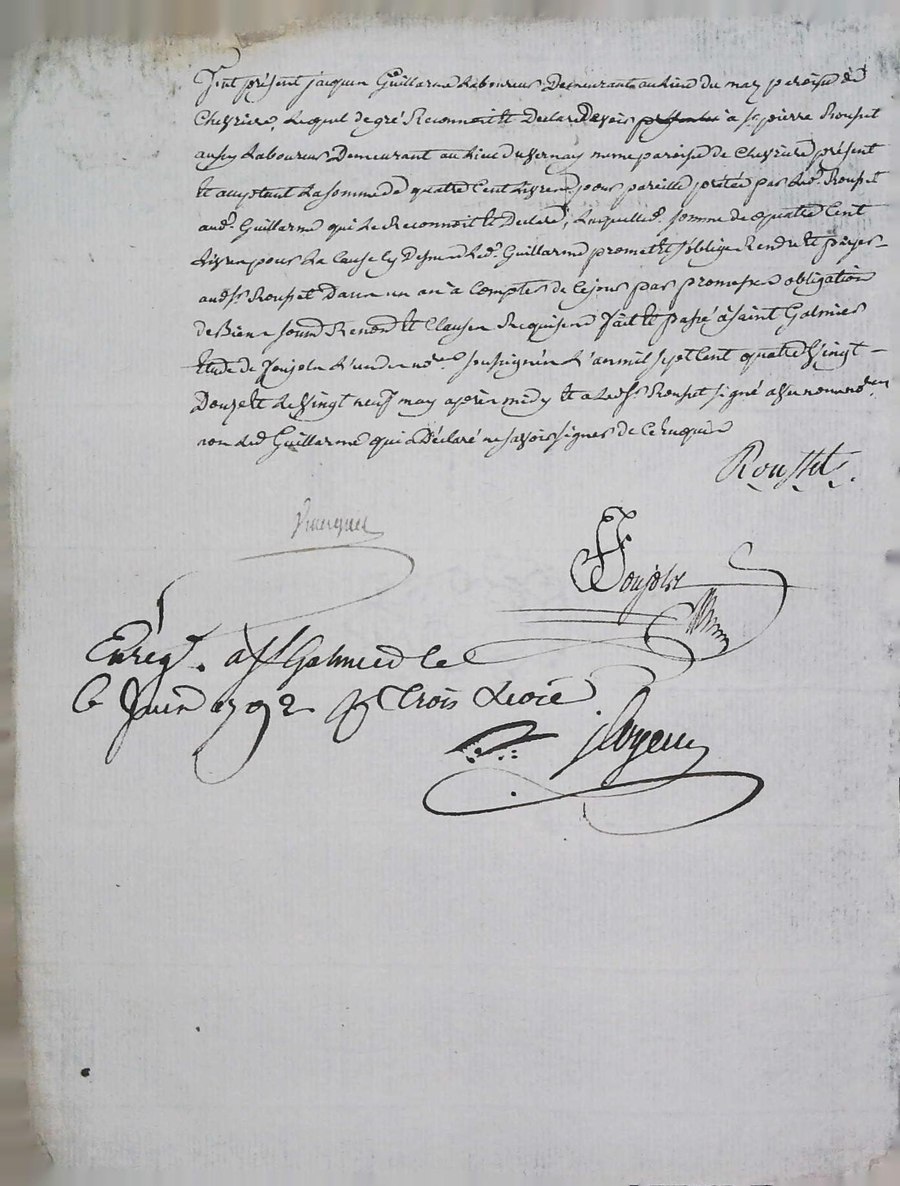 Fut présent jacques Guillarme Laboureur Demeurant au Lieu du may paroisse de
Chevriere, Lequel de gré Reconnoit et Declare Devoir à sr pierre Rousset
aussy Laboureur Demeurant au Lieu du vernay meme paroisse de Chevriere présent
et acceptant La somme de quatre Cent Livres, pour pareille pretée par Led. Rousset
aud. Guillarme qui Le Reconnoit et Declare, Laquelle d. somme de quatre Cent
Livres pour La Cause cy Dessus Led. Guillarme promet et s'oblige Rendre et payer
aud. sr Rousset Dans un an à Compter de Ce jour par promesse obligation
de Biens soum Renon et Clauses Requises Fait et passé à saint Galmier
Etude de Joujoln L'un des nores soussignés L'an mil sept Cent quatre vingt
Douze et Le vingt neuf may après midy et a Led. sr Rousset signé avec nous nores
non Led Guillarme qui a Déclaré ne savoir signer de Ce requis
Rousset
Enregt. a st Galmier le
Juin 1792 R trois Livre